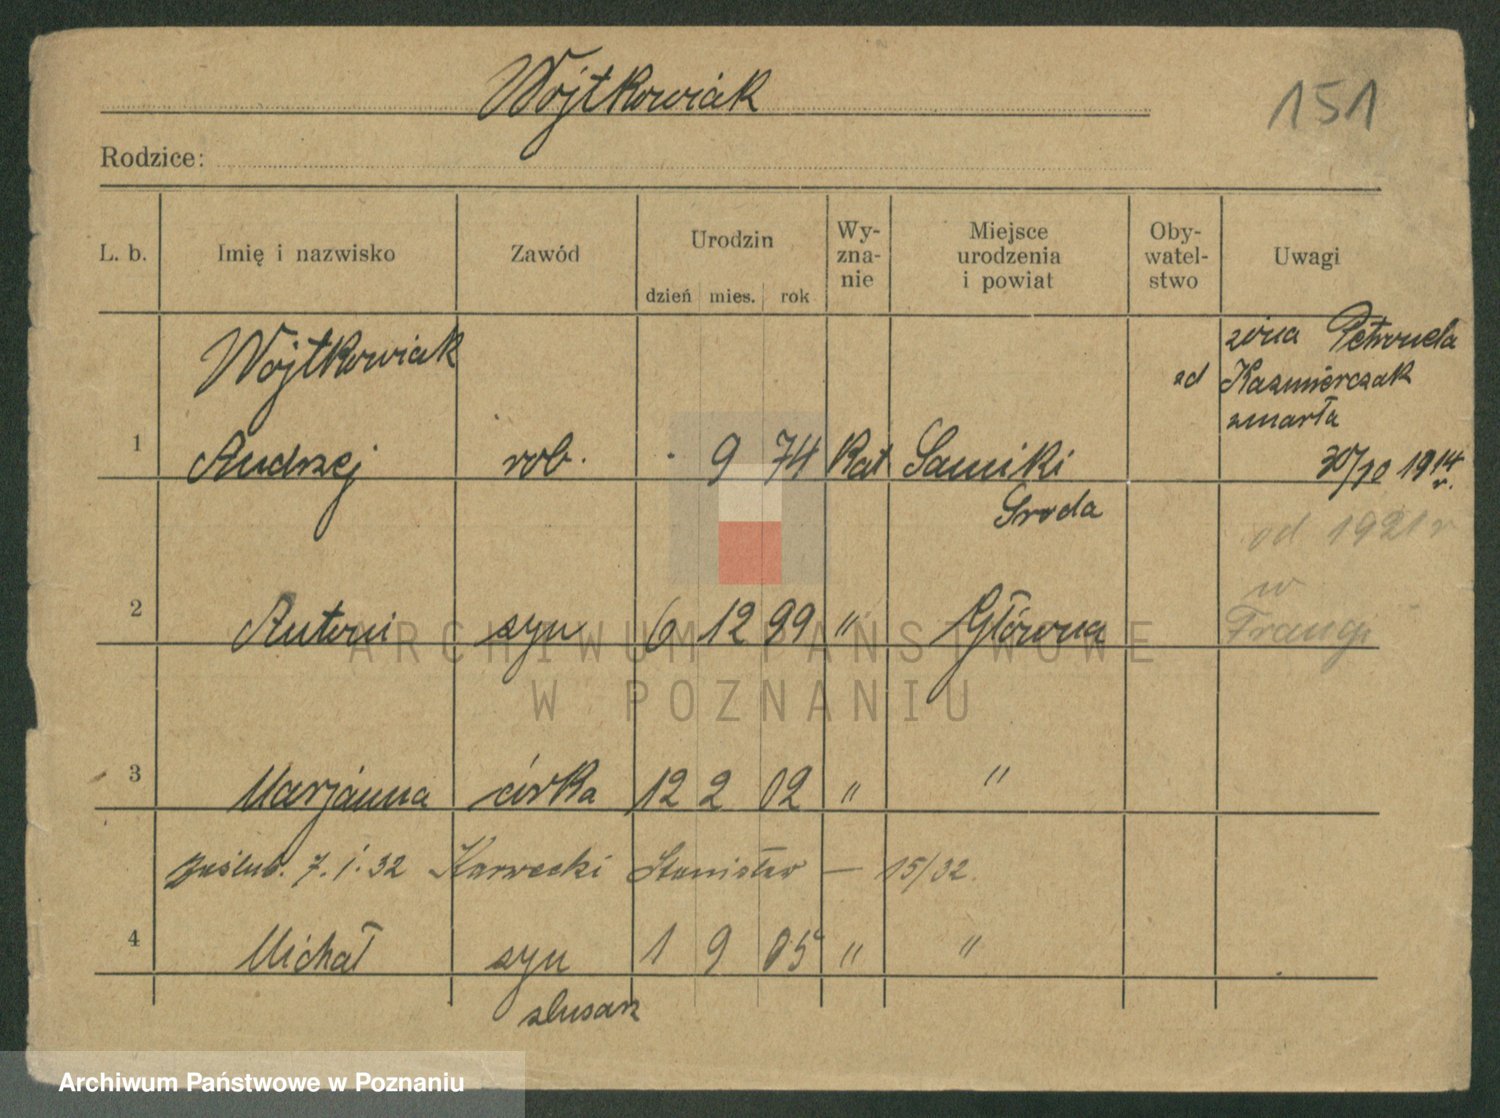 Wojtkowiak
151
Rodzice:
L. b. Imię i nazwisko Zawód Urodzin dzień mies. rok Wy-zna-nie Miejsce urodzenia i powiat Oby-watel-stwo Uwagi
Wojtkowiak żona Petronela
zd Kazmierczak
zmarła
1 Andrzej rob. . 9 74 Kat Sanniki 30/10 1914 r.
Sroda
od 1921 r
w
2 Antoni syn 6 12 99 " Główna Francji
ARCHIWUM PAŃSTWOWE
W POZNANIU
3 Marjanna córka 12 2 02 " "
zaślub. 7.1.32 Karwecki Stanisław — 15/32.
4 Michał syn 1 9 05 " "
slusarz
Archiwum Państwowe w Poznaniu